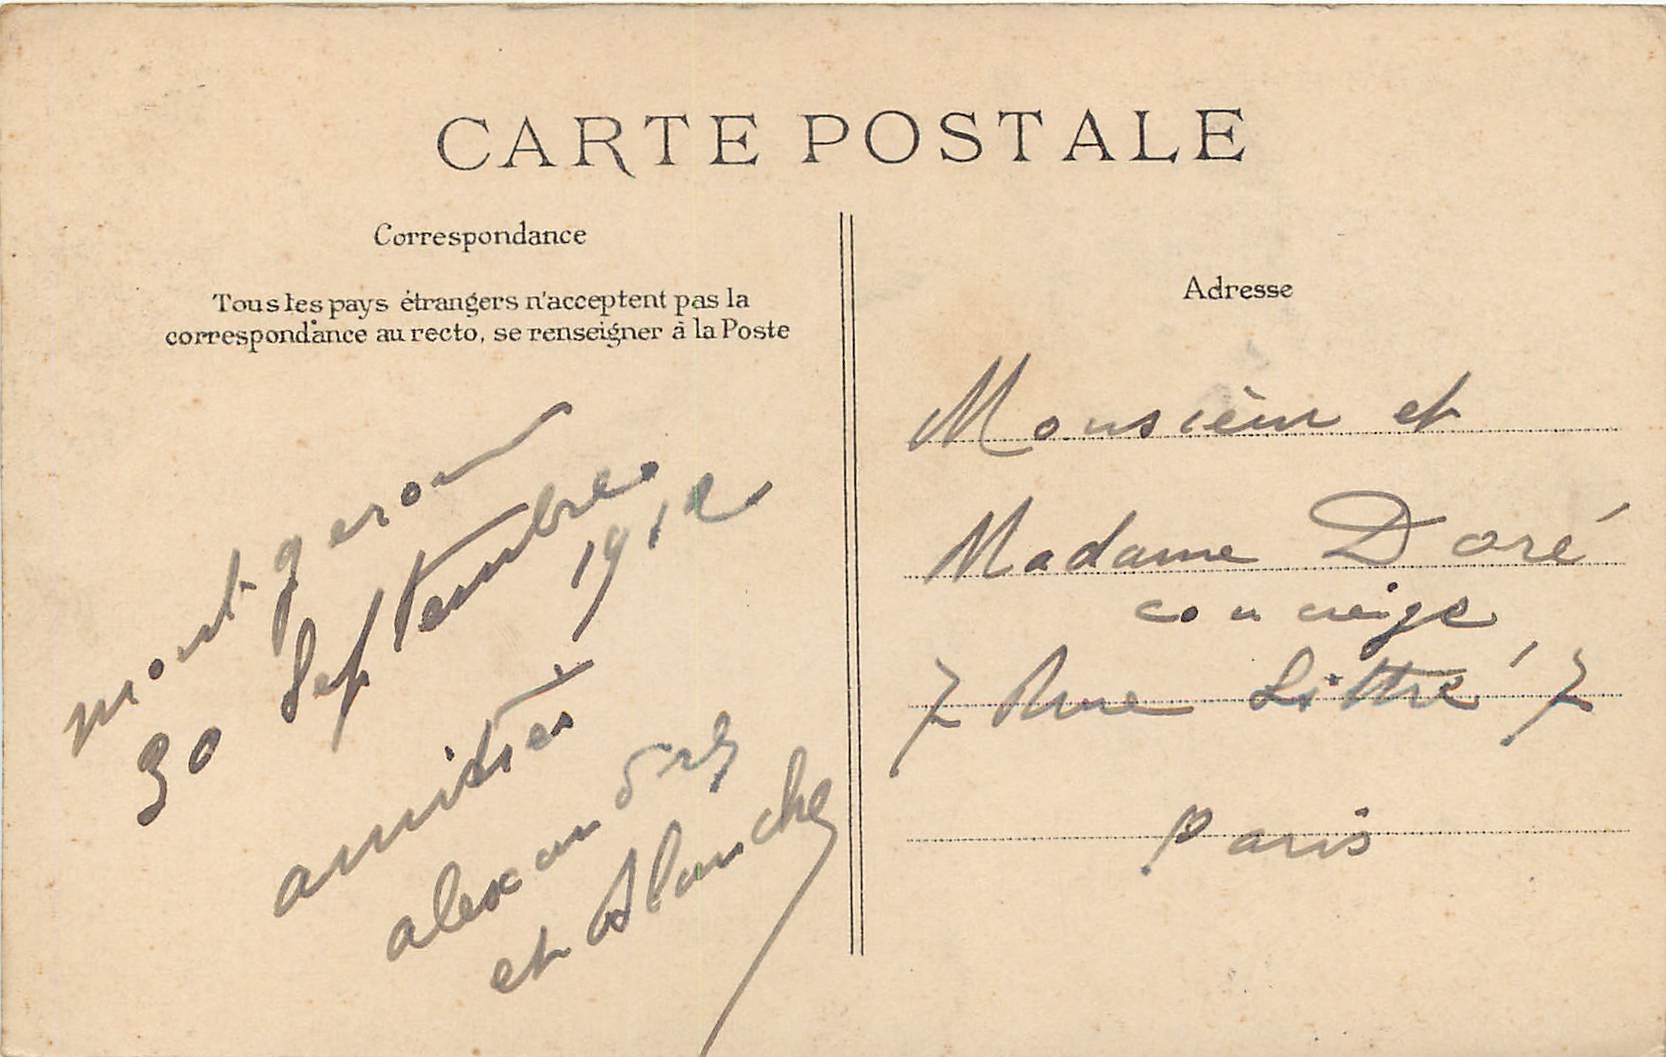 CARTE POSTALE
Correspondance
Tous les pays étrangers n'acceptent pas la
correspondance au recto, se renseigner à la Poste
montgeron
30 Septembre
1912
amitiés
alexandre
et Blanche
Adresse
Monsieur et
Madame Doré
concierge
7 Rue Littré 7
Paris